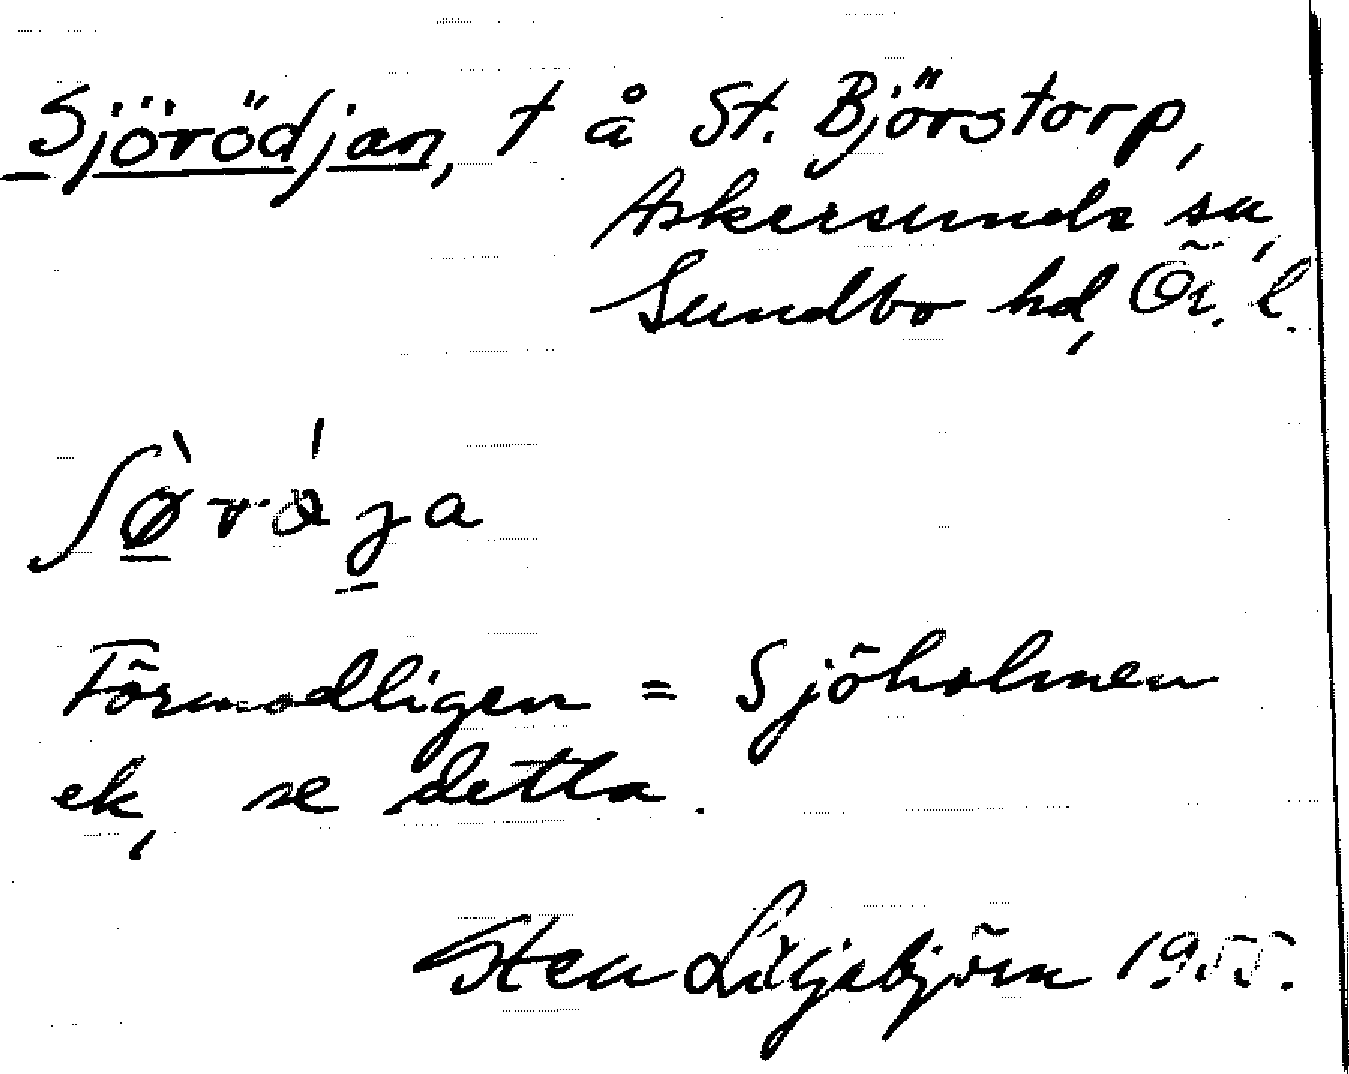 Sjörödjan, t å St. Björstorp,
Askersunds sn,
Sundbo hd, Ör. l.
ʃø̀rǿja
Förmodligen = Sjöholmen
ek, se detta.
Sten Liljebjörn 1955.